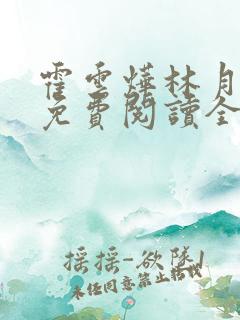 霍雲燁林月
免費閱讀全
搖搖-欲墜!
未经同意禁止转载